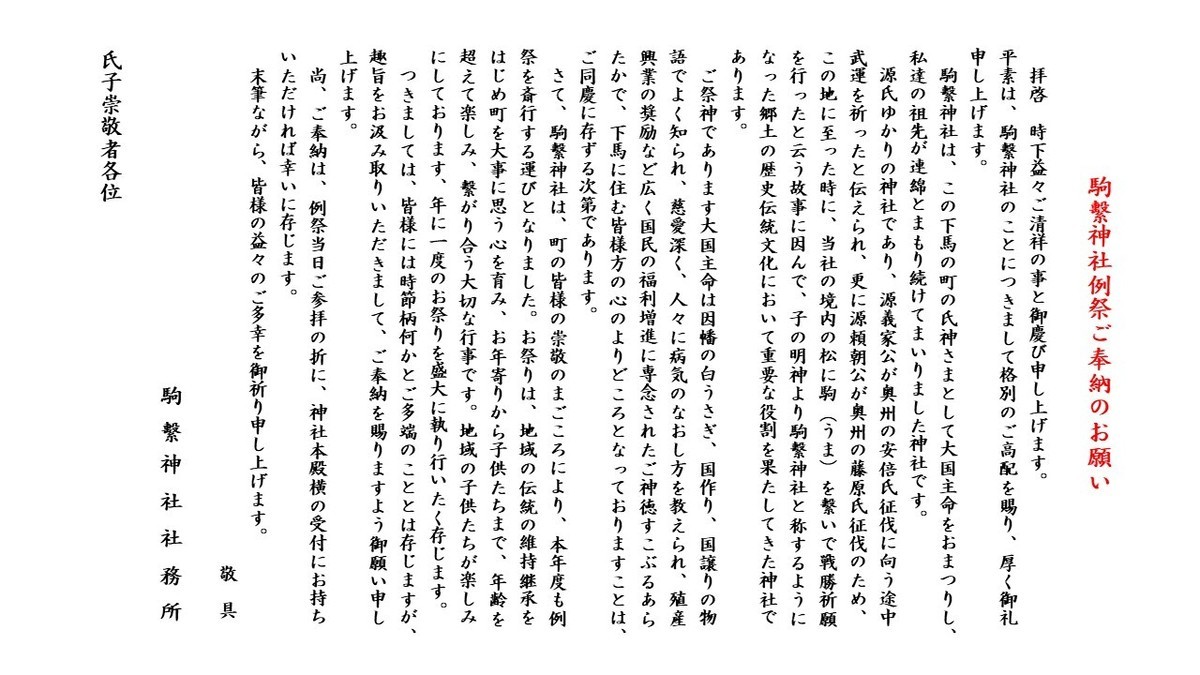 駒繋神社例祭ご奉納のお願い
拝啓　時下益々ご清祥の事と御慶び申し上げます。
平素は、駒繋神社のことにつきまして格別のご高配を賜り、厚く御礼
申し上げます。
駒繋神社は、この下馬の町の氏神さまとして大国主命をおまつりし、
私達の祖先が連綿とまもり続けてまいりました神社です。
源氏ゆかりの神社であり、源義家公が奥州の安倍氏征伐に向う途中
武運を祈ったと伝えられ、更に源頼朝公が奥州の藤原氏征伐のため、
この地に至った時に、当社の境内の松に駒（うま）を繋いで戦勝祈願
を行ったと云う故事に因んで、子の明神より駒繋神社と称するように
なった郷土の歴史伝統文化において重要な役割を果たしてきた神社で
あります。
ご祭神であります大国主命は因幡の白うさぎ、国作り、国譲りの物
語でよく知られ、慈愛深く、人々に病気のなおし方を教えられ、殖産
興業の奨励など広く国民の福利増進に専念されたご神徳すこぶるあら
たかで、下馬に住む皆様方の心のよりどころとなっておりますことは、
ご同慶に存ずる次第であります。
さて、駒繋神社は、町の皆様の崇敬のまごころにより、本年度も例
祭を斎行する運びとなりました。お祭りは、地域の伝統の維持継承を
はじめ町を大事に思う心を育み、お年寄りから子供たちまで、年齢を
超えて楽しみ、繋がり合う大切な行事です。地域の子供たちが楽しみ
にしております、年に一度のお祭りを盛大に執り行いたく存じます。
つきましては、皆様には時節柄何かとご多端のこととは存じますが、
趣旨をお汲み取りいただきまして、ご奉納を賜りますよう御願い申し
上げます。
尚、ご奉納は、例祭当日ご参拝の折に、神社本殿横の受付にお持ち
いただければ幸いに存じます。
末筆ながら、皆様の益々のご多幸を御祈り申し上げます。
敬具
駒繋神社社務所
氏子崇敬者各位